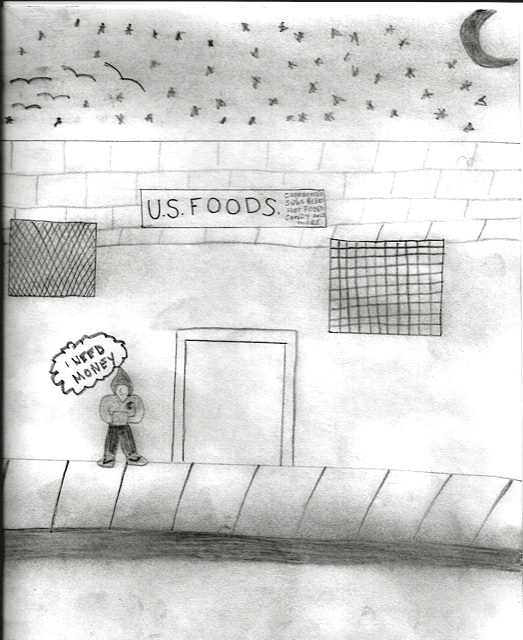 U.S. FOODS.
SUBS BEER
HOT FOOD
CANDY AND
MORE
I NEED
MONEY